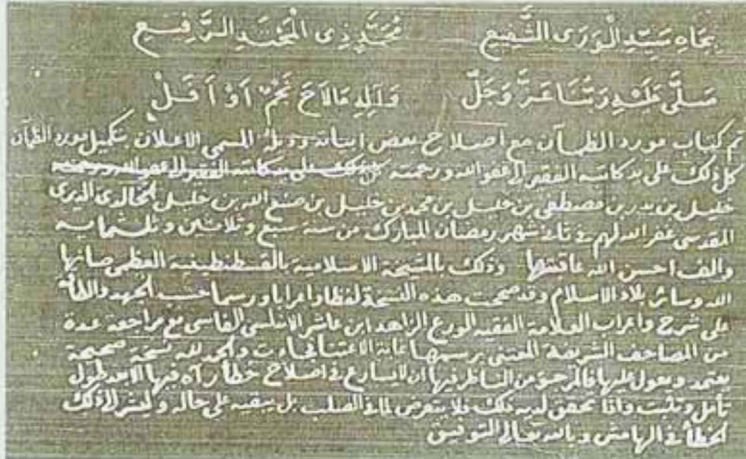 بِجَاهِ سَيِّدِ الْوَرَى الشَّفِيعِ مُحَمَّدٍ ذِى الْمَحْتِدِ الرَّفِيعِ
صَلَّى عَلَيْهِ رَبُّنَا عَزَّ وَجَلَّ وَآلِهِ مَا لَاحَ نَجْمٌ أَوْ أَفَلْ
تم كتاب مورد الظمآن مع اصلاح بعض ابياته وذيله المسمى الاعلان بتكميل مورد الظمآن
كل ذلك على يد كاتبه الفقير الى عفو الله ورحمته كل ذلك على يد كاتبه الفقير الى عفو الله ورحمته
خليل بن بدر بن مصطفى بن خليل بن محمد بن خليل بن صنع الله بن خليل الخالدى الديرى
المقدسى غفر الله لهم فى ثانى شهر رمضان المبارك من سنة سبع وثلاثين وثلثمايه
والف احسن الله عاقبتها وذلك بالمشيخة الاسلامية بالقسطنطينية العظمى صانها
الله وسائر بلاد الاسلام وقد صححت هذه النسخة لفظا واعرابا ورسما حسب الجهد والطاقة
على شرح واعراب العلامة الفقيه الورع الزاهد ابن عاشر الاندلسى الفاسى مع مراجعة عدة
من المصاحف الشريفة المعتنى برسمها غاية الاعتنا فجاءت والحمد لله نسخة صحيحة
يعتمد ويعول عليها فالمرجو من الناظر فيها ان لا يسارع فى اصلاح خطأ رآه فيها الا بعد طول
تأمل وتثبت واذا تحقق لديه ذلك فلا يتعرض لما فى الصلب بل يبقيه على حاله وليشر لذلك
الخطأ فى الهامش وبالله تعالى التوفيق